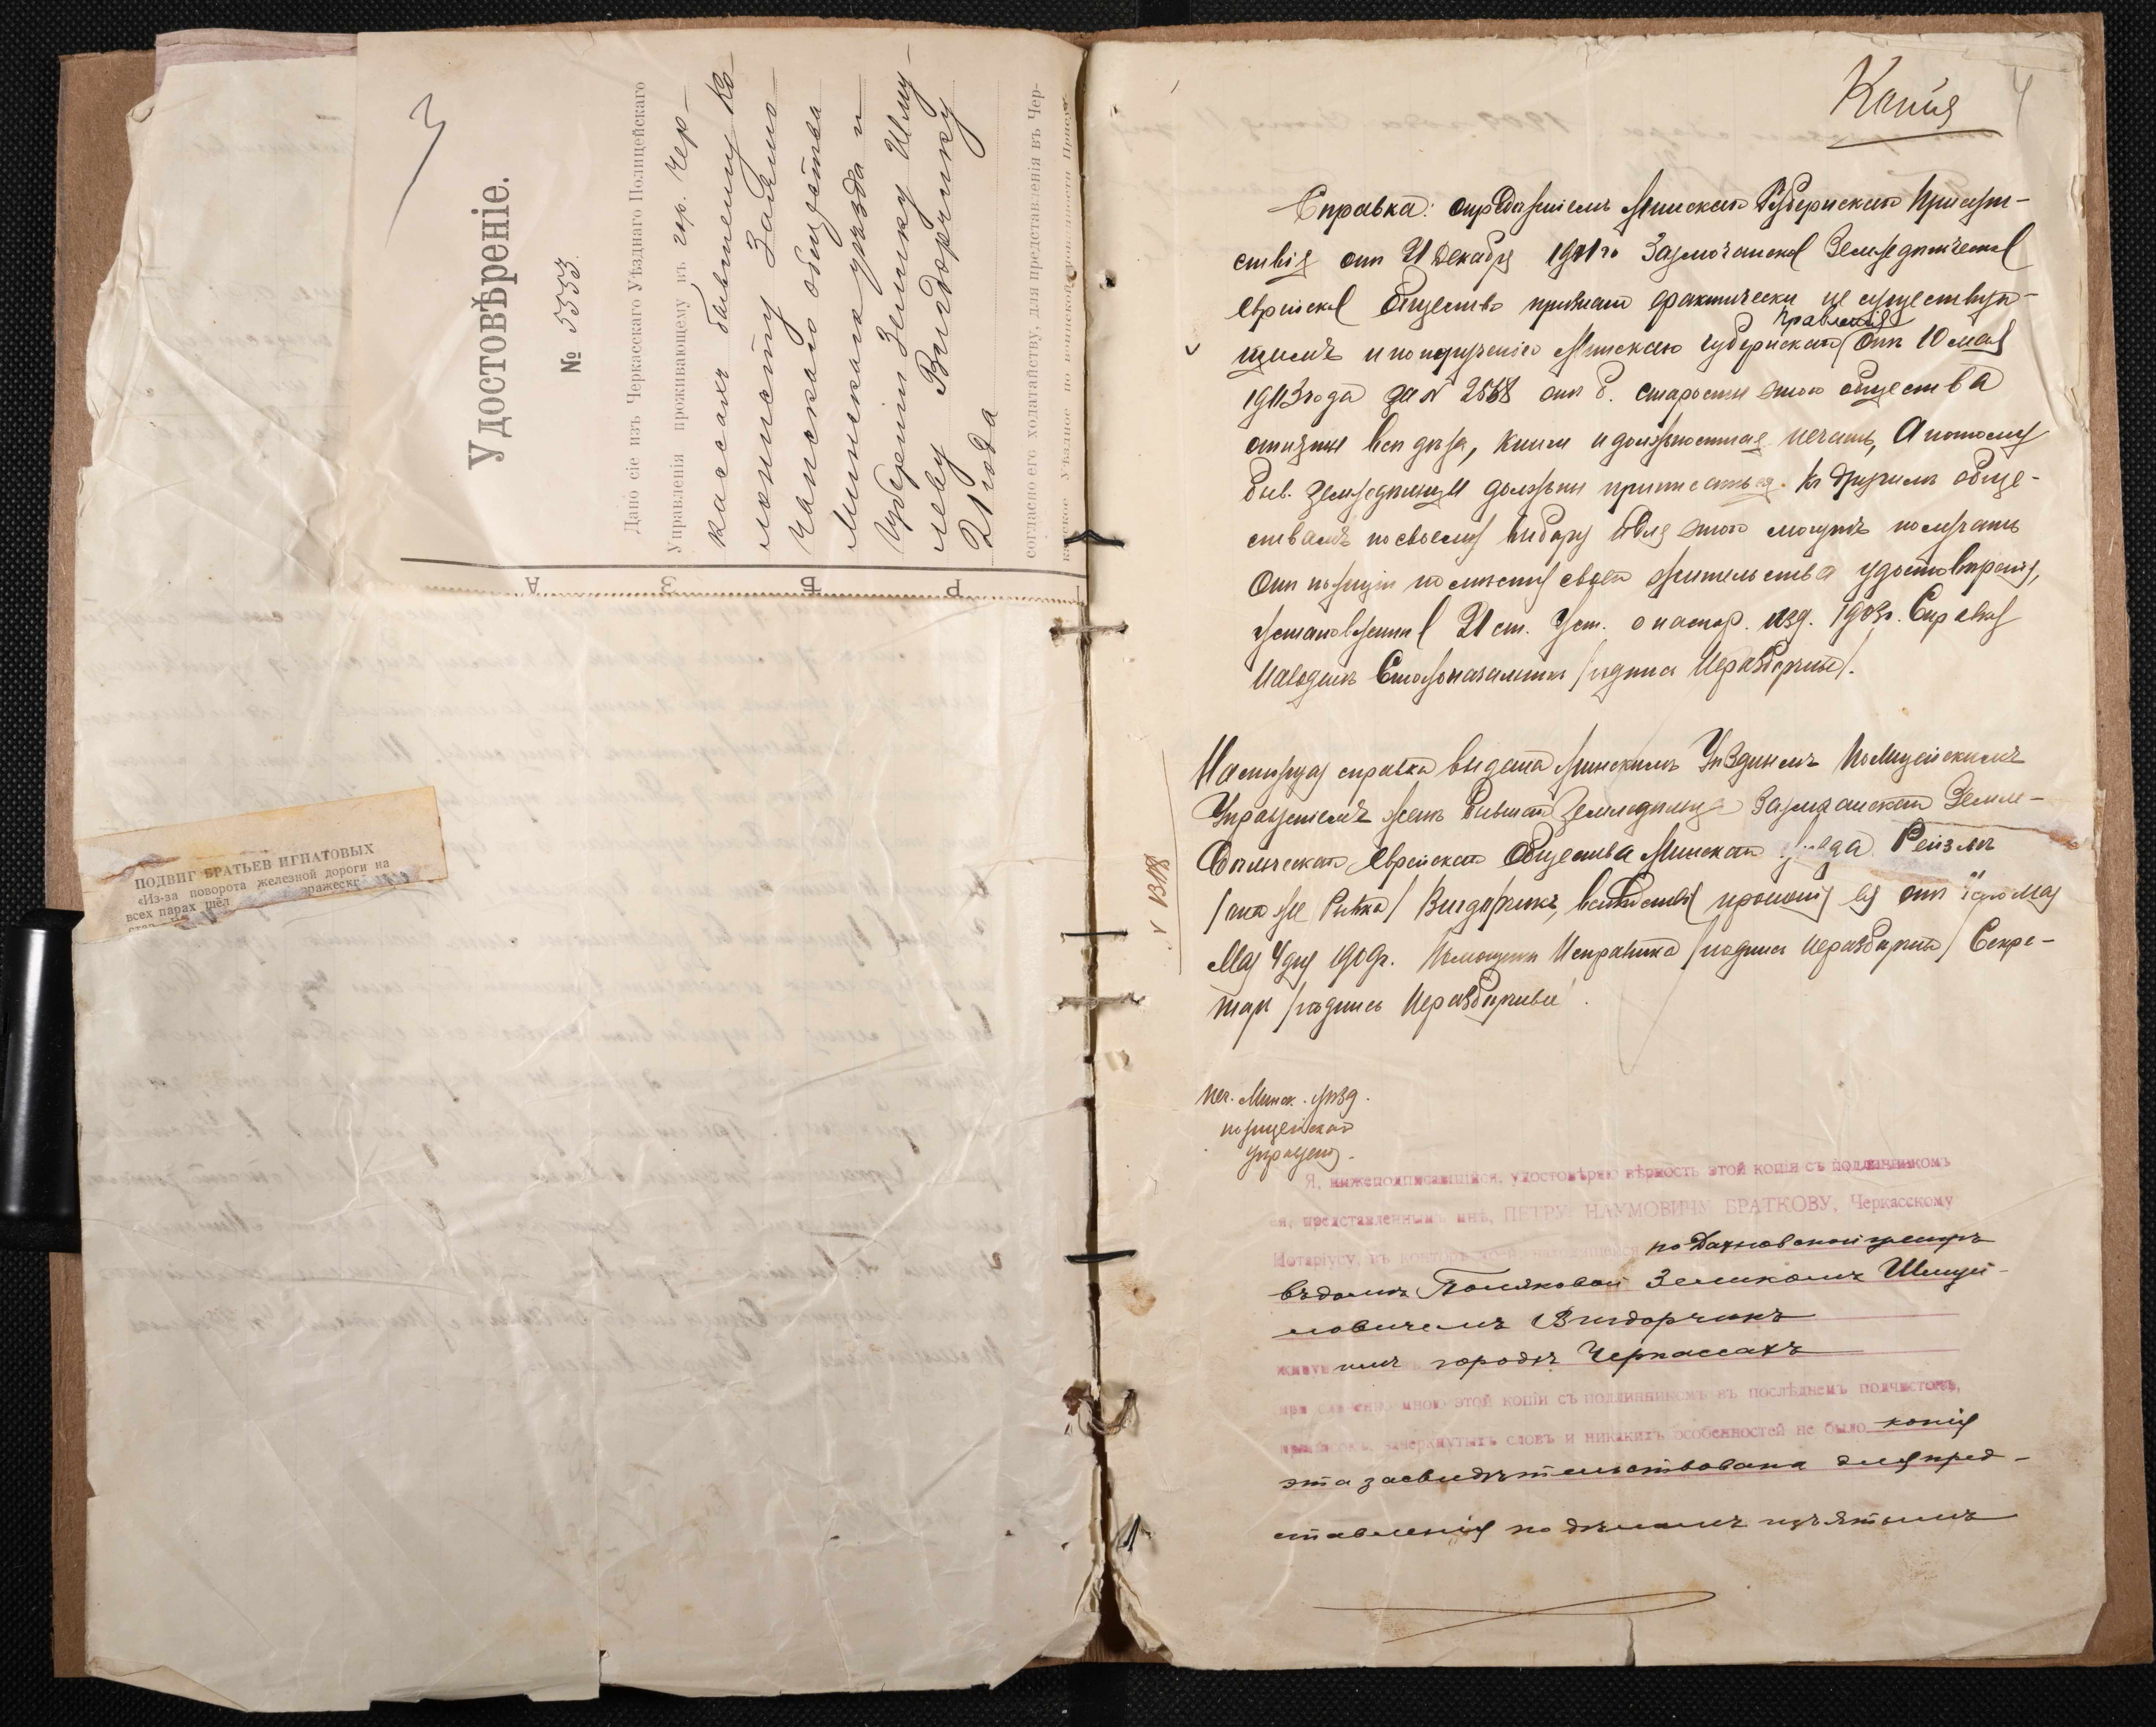 3
Удостовѣреніе.
№ 5553
Дано сіе изъ Черкасскаго Уѣзднаго Полицейскаго
Управленія проживающему въ гор. Чер-
кассахъ бывшему ко-
лонисту Залмо-
чанскаго общества
Минскаго уѣзда и
губерніи Зелику Шму-
леву Вигдорчику
21 года
согласно его ходатайству, для представленія въ Чер-
касское Уѣздное по воинской повинности Присут
Р Ѣ З А
ПОДВИГ БРАТЬЕВ ИГНАТОВЫХ
«Из-за поворота железной дороги на
всех парах шёл вражеск
Копія
4
Справка: опредѣленіемъ Минскаго Губернскаго Присут-
ствія отъ 21 Декабря 1901 го Залмочанское Земледѣльческое
еврейское общество признано фактически не существую-
Правленія
щимъ и по порученію Минскаго Губернскаго отъ 10 мая
1903 года за № 2568 отъ б. старосты этого общества
отобраны всѣ дѣла, книги и должностная печать, а потому
быв. земледѣльцы должны приписаться къ другимъ обще-
ствамъ по своему выбору и для этого могутъ получать
отъ полиціи по мѣсту своего жительства удостовѣренія,
установленныя 21 ст. Уст. о паспор. изд. 1903 г. Справку
наводилъ Столоначальникъ /подпись неразборчива/.
Настоящая справка выдана Минскимъ Уѣзднымъ Полицейскимъ
Управленіемъ женѣ бывшаго земледѣльца Залмочанскаго Земле-
дѣльческаго Еврейскаго Общества Минскаго уѣзда Рейзлѣ
/она же Рывка/ Вигдорчикъ, вслѣдствіе прошенія ея отъ
Мая 4 дня 1909 г. Помощникъ Исправника /подпись неразборчива/ Секре-
тарь /подпись неразборчива/.
Печ. Минск. уѣзд.
полицейскаго
управленія.
Я, нижеподписавшійся, удостовѣряю вѣрность этой копіи съ подлинникомъ
ея, представленнымъ мнѣ, ПЕТРУ НАУМОВИЧУ БРАТКОВУ, Черкасскому
Нотаріусу, въ конторѣ моей, по Дахновской улицѣ
въ домѣ Поляковой Зеликомъ Шмуй-
ловичемъ Вигдорчикъ
живущимъ въ городѣ Черкассахъ
при сличеніи мною этой копіи съ подлинникомъ въ послѣднемъ подчистокъ,
приписокъ, зачеркнутыхъ словъ и никакихъ особенностей не было копія
эта засвидѣтельствована для пред-
ставленія по дѣламъ изъятымъ